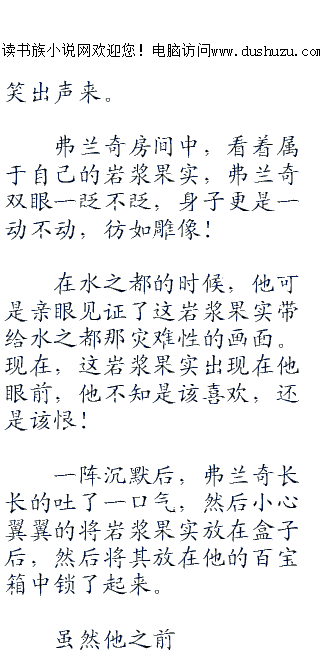 读书族小说网欢迎您！电脑访问www.dushuzu.com
笑出声来。
弗兰奇房间中，看着属
于自己的岩浆果实，弗兰奇
双眼一眨不眨，身子更是一
动不动，彷如雕像！
在水之都的时候，他可
是亲眼见证了这岩浆果实带
给水之都那灾难性的画面。
现在，这岩浆果实出现在他
眼前，他不知是该喜欢，还
是该恨！
一阵沉默后，弗兰奇长
长的吐了一口气，然后小心
翼翼的将岩浆果实放在盒子
后，然后将其放在他的百宝
箱中锁了起来。
虽然他之前